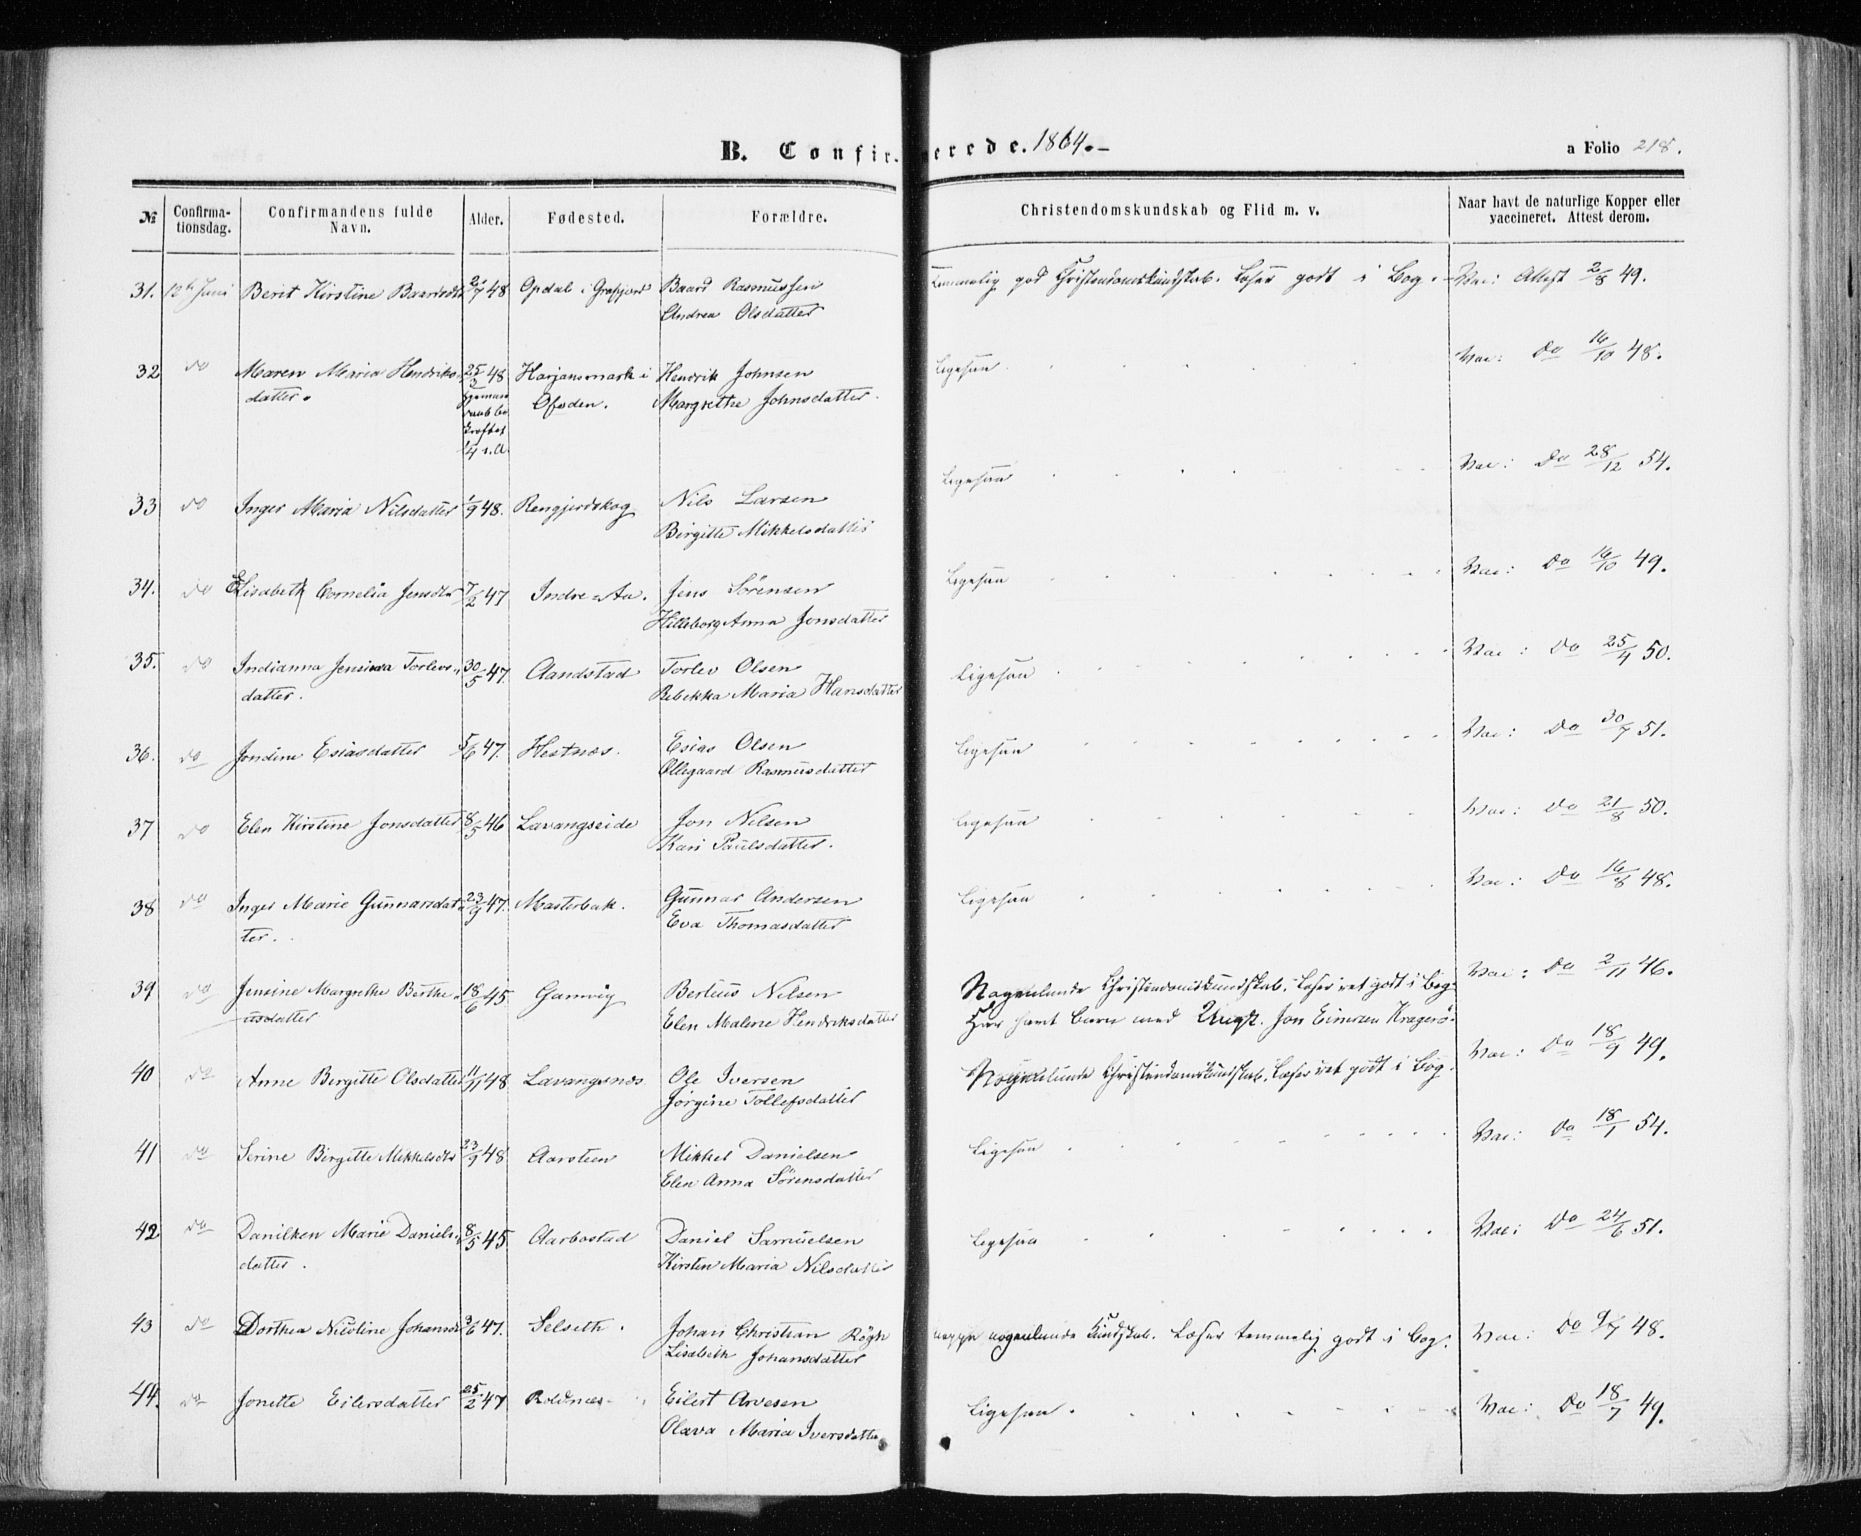 B. Confirmerede. 1864.-
a Folio 218.
№ Confirma-tionsdag. Confirmandens fulde Navn. Alder. Fødested. Forældre. Christendomskundskab og Flid m. v. Naar havt de naturlige Kopper eller vaccineret. Attest derom.
31. 12te Juni Berit Kirstine Baardsdtr 2/7 48 Opdal i Gratfjord Baard Rasmussen temmelig god Christendomskundskab. Læser godt i Bog. Vac: Attest 2/8 49.
Andrea Olsdatter
32 do Maren Maria Hendriks- 25/3 48 Harjansmark i Hendrik Johnsen Ligesaa Vac: Do 16/10 48.
datter. Ofoden. Margrethe Johnsdatter.
33 do Inger Maria Nilsdatter 1/9 48. Rengjerdskog Nils Larsen Ligesaa Vac: Do 28/12 54.
Birgitte Mikkelsdatter
34. do Elisabeth Cornelia Jensdtr 7/2 47 Indre-Aa. Jens Sörensen Ligesaa Vac: Do 16/10 49.
Hilleborg Anna Jonsdatter
35. do Indianna Jensina Torlevs- 30/5 47. Aandstad Torlev Olsen Ligesaa Vac: Do 25/4 50.
datter. Rebekka Maria Hansdatter
36. do Jondine Esiasdatter 5/6 47. Hestnæs. Esias Olsen Ligesaa Vac: Do 30/7 51.
Ollegaard Rasmusdatter
37 do Elen Kirstine Jonsdatter 8/5 46 Lavangseide Jon Nilsen Ligesaa Vac: Do 21/8 50.
Kari Paulsdatter.
38 do Inger Marie Gunnarsdat- 23/9 47. Masterbak. Gunnar Andersen Ligesaa Vac: Do 16/8 48.
ter. Eva Thomasdatter
39 do Jensine Margrethe Berthe- 18/6 45 Gamvig Berteus Nilsen Nogenlunde Christendomskundskab. Læser ret godt i Bog. Vac: Do 2/11 46.
usdatter Elen Malene Hendriksdatter Har havt Barn med Ungk. Jon Einersen Kragerö
40 do Anne Birgitte Olsdatter 11/11 48 Lavangsnæs Ole Iversen Nogenlunde Christendomskundskab. Læser ret godt i Bog. Vac: Do 18/9 49.
Jörgine Tollefsdatter
41 do Serine Birgitte Mikkelsdtr 23/9 48 Aarsteen Mikkel Danielsen Ligesaa Vac: Do 18/1 54.
Elen Anna Sörensdatter
42 do Danilken Marie Daniels- 8/5 45 Aarbostad Daniel Samuelsen Ligesaa Vac: Do 24/6 51.
datter. Kirsten Maria Nilsdatter
43 do Dorthea Nicoline Johansdr 3/6 47. Selseth. Johan Christian Rögh neppe nogenlunde Kundskab. Læser temmelig godt i Bog. Vac: Do 9/7 48.
Lisabeth Johansdatter
44. do Jonette Eilersdatter 25/2 47 Roldnæs Eilert Arvesen Ligesaa. Vac: Do 18/7 49.
Olava Maria Iversdatter